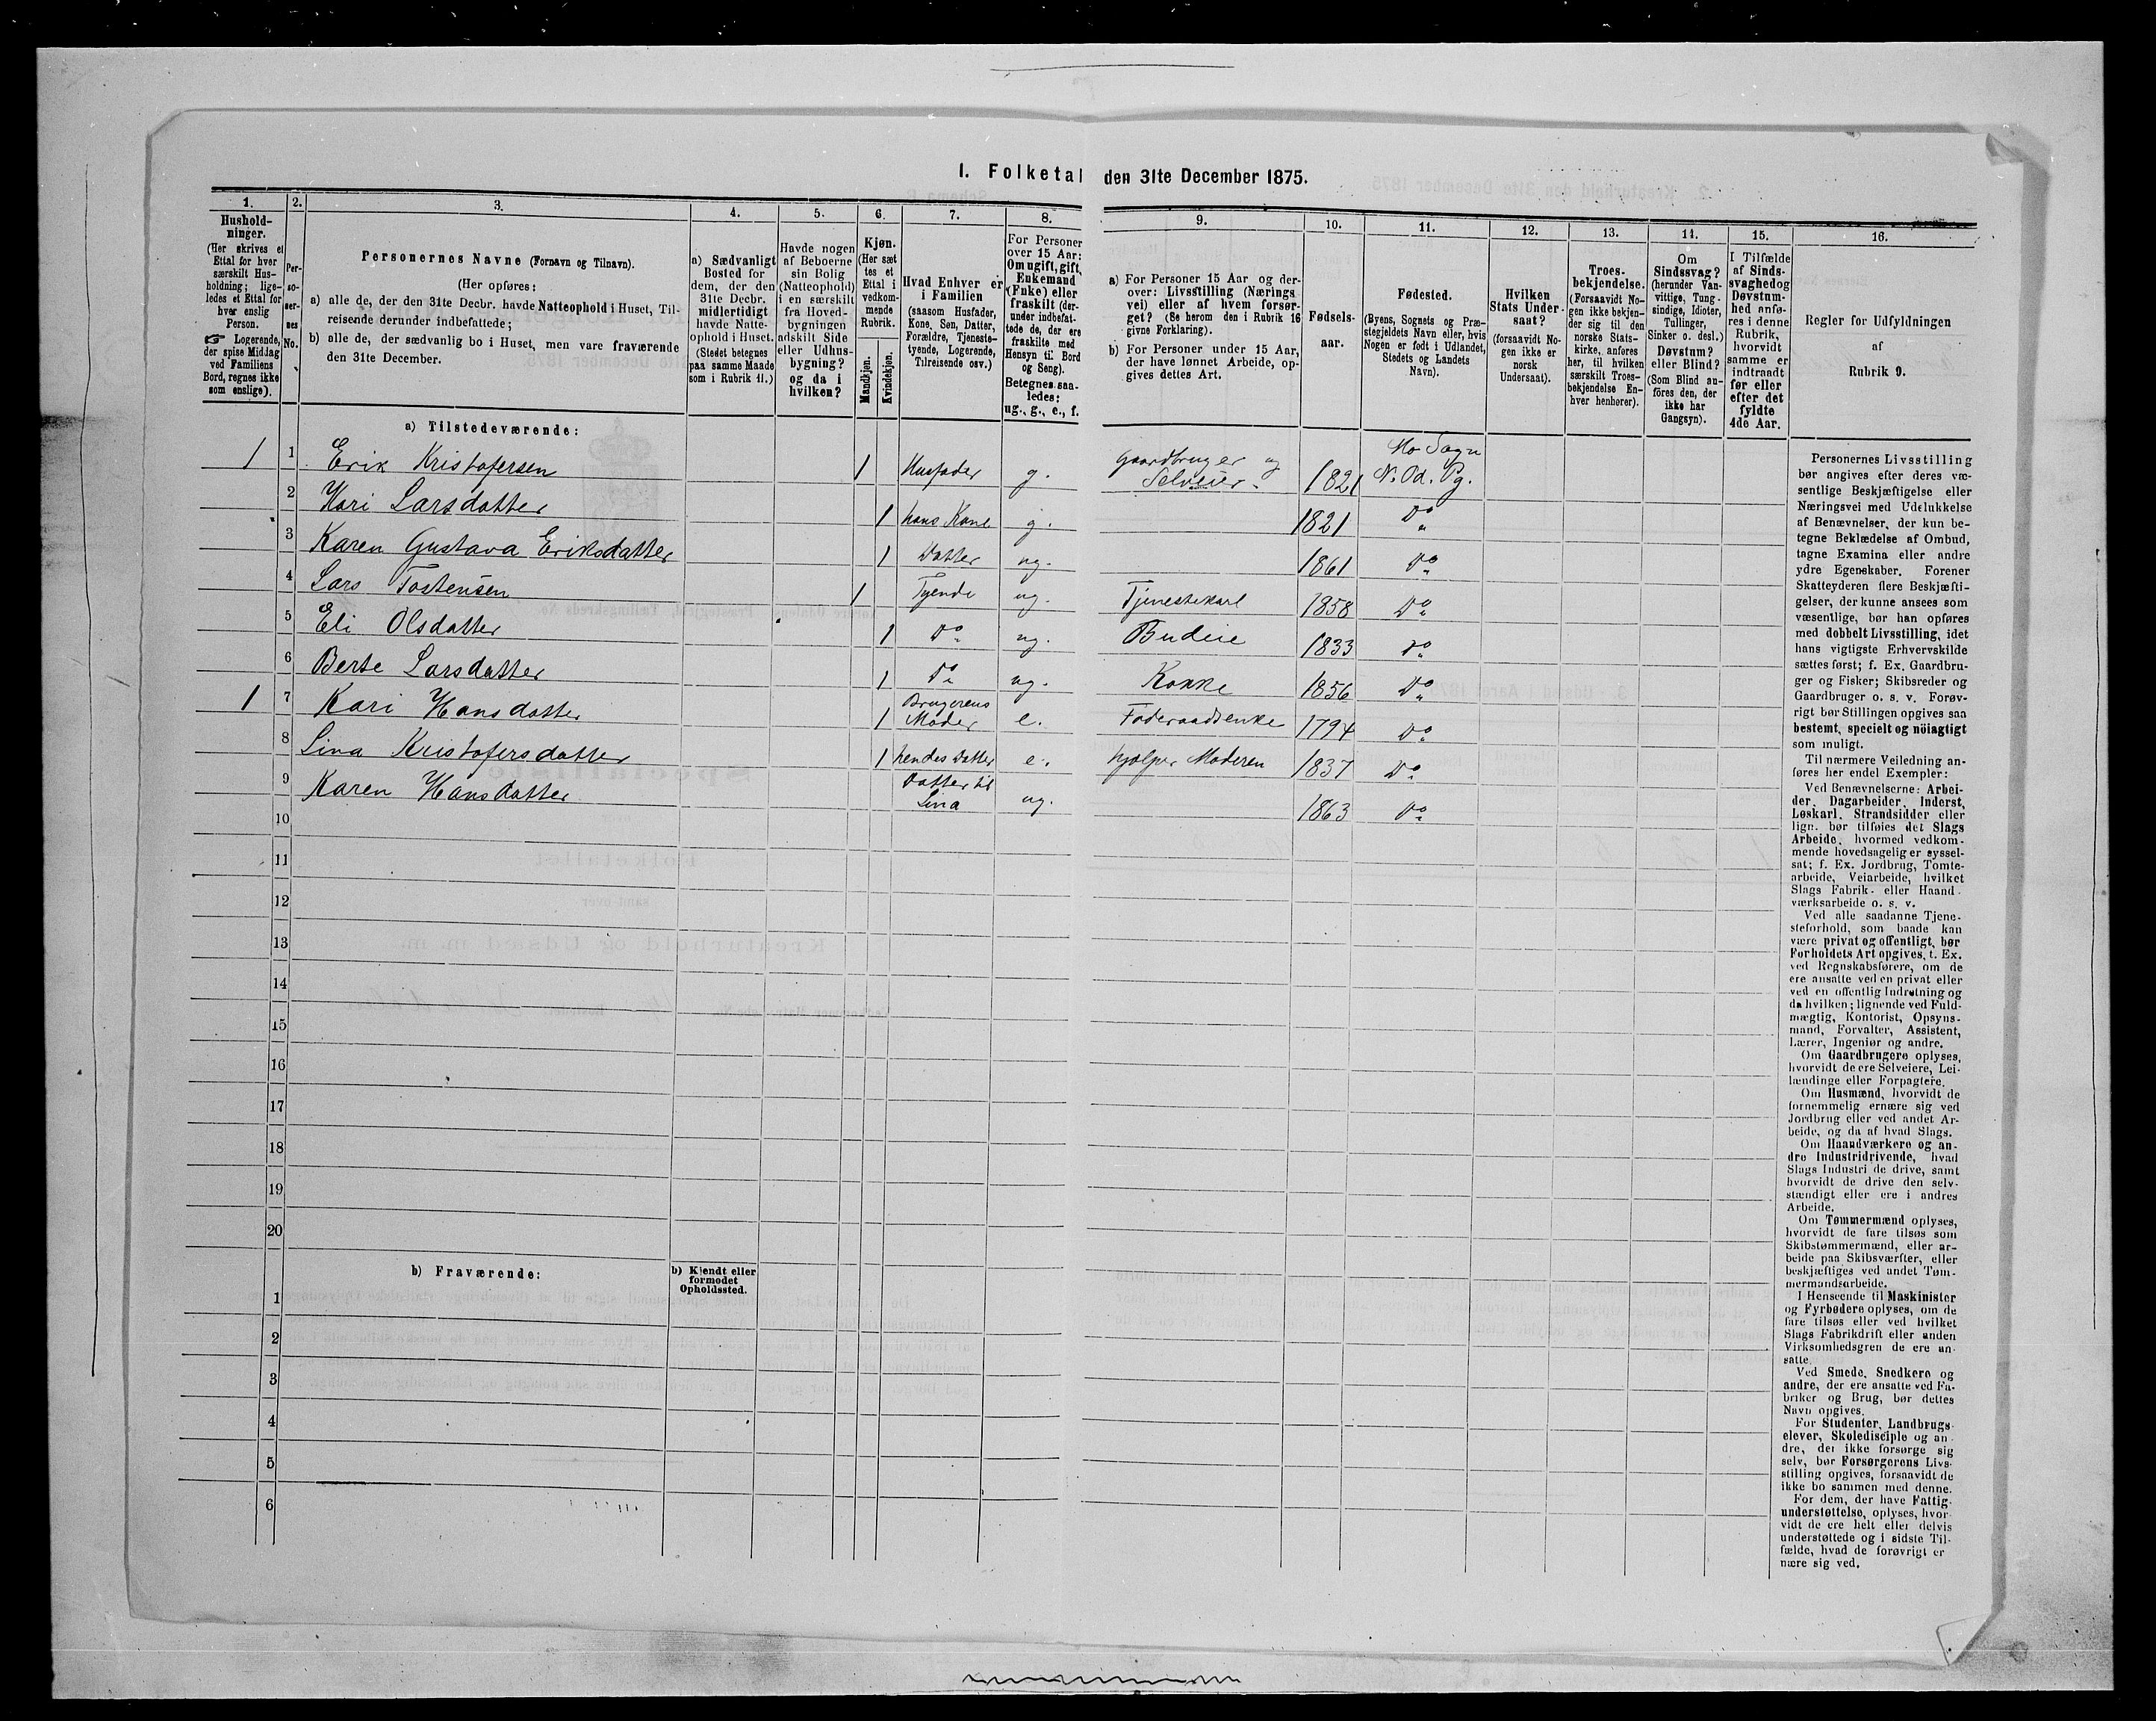 I. Folketal den 31te December 1875.
1. 2. 3. 4. 5. 6. 7. 8. 9. 10. 11. 12. 13. 14. 15. 16.
Hushold-
ninger.
(Her skrives et
Ettal for hver
særskilt Hus-
holdning; lige-
ledes et Ettal for
hver enslig
Person.
☞ Logerende,
der spise Middag
ved Familiens
Bord, regnes ikke
som enslige).
Per-
so-
ner-
nes
No.
Personernes Navne (Fornavn og Tilnavn).
(Her opføres:
a) alle de, der den 31te Decbr. havde Natteophold i Huset, Til-
reisende derunder indbefattede;
b) alle de, der sædvanlig bo i Huset, men vare fraværende
den 31te December.
a) Sædvanligt
Bosted for
dem, der den
31te Decbr.
midlertidigt
havde Natte-
ophold i Huset.
(Stedet betegnes
paa samme Maade
som i Rubrik 11.)
Havde nogen
af Beboerne
sin Bolig
(Natteophold)
i en særskilt
fra Hoved-
bygningen
adskilt Side
eller Udhus-
bygning?
og da i
hvilken?
Kjøn.
(Her sæt
tes et
Ettal i
vedkom-
mende
Rubrik.
Mandkjøn.
Kvindekjøn.
Hvad Enhver er
i Familien
(saasom Husfader,
Kone, Søn, Datter,
Forældre, Tjeneste-
tyende, Logerende,
Tilreisende osv.)
For Personer
over 15 Aar:
Om ugift, gift,
Enkemand
(Enke) eller
fraskilt (der-
under indbefat-
tede de, der ere
fraskilte med
Hensyn til Bord
og Seng).
Betegnes saa-
ledes:
ug., g., e., f.
a) For Personer 15 Aar og der-
over: Livsstilling (Nærings
vei) eller af hvem forsør-
get? (Se herom den i Rubrik 16
givne Forklaring).
b) For Personer under 15 Aar,
der have lønnet Arbeide, op-
gives dettes Art.
Fødsels-
aar.
Fødested.
(Byens, Sognets og Præ-
stegjeldets Navn eller, hvis
Nogen er født i Udlandet,
Stedets og Landets
Navn).
Hvilken
Stats Under-
saat?
(forsaavidt No-
gen ikke er
norsk
Undersaat).
Troes-
bekjendelse.
(Forsaavidt No-
gen ikke bekjen-
der sig til den
norske Stats-
kirke, anføres
her, til hvilken
særskilt Troes-
bekjendelse En-
hver henhører).
Om
Sindssvag?
(herunder Van-
vittige, Tung-
sindige, Idioter,
Tullinger,
Sinker o. desl.)
Døvstum?
eller Blind?
(Som Blind an-
føres den, der
ikke har
Gangsyn).
I Tilfælde
af Sinds-
svaghed og
Døvstum-
hed anfø-
res i denne
Rubrik,
hvorvidt
samme er
indtraadt
før eller
efter det
fyldte
4de Aar.
Regler for Udfyldningen
af
Rubrik 9.
a) Tilstedeværende:
1 1 Erik Kristofersen 1 Husfader g. Gaardbruger og Selveier. 1821 Mo Sogn N. Od. Pg.
2 Kari Larsdatter 1 hans Kone g. 1821 Do
3 Karen Gustava Eriksdatter 1 Datter ug. 1861 Do
4 Lars Tostensen 1 Tyende ug. Tjenestekarl 1858 Do
5 Eli Olsdatter 1 Do ug. Budeie 1833 Do
6 Berte Larsdatter 1 Do ug. Kokke 1856 Do
1 7 Kari Hansdatter 1 Brugerens Moder e. Føderaadsenke 1794 Do
8 Lina Kristofersdatter 1 hendes Datter e. hjælper Moderen 1837 Do
9 Karen Hansdatter Datter til Lina ug. 1863 Do
10
11
12
13
14
15
16
17
18
19
20
b) Fraværende:
b) Kjendt eller
formodet
Opholdssted.
1
2
3
4
5
6
Personernes Livsstilling
bør angives efter deres væ-
sentlige Beskjæftigelse eller
Næringsvei med Udelukkelse
af Benævnelser, der kun be-
tegne Beklædelse af Ombud,
tagne Examina eller andre
ydre Egenskaber. Forener
Skatteyderen flere Beskjæfti-
gelser, der kunne ansees som
væsentlige, bør han opføres
med dobbelt Livsstilling, idet
hans vigtigste Erhvervskilde
sættes først; f. Ex. Gaardbru-
ger og Fisker; Skibsreder og
Gaardbruger o. s. v. Forøv-
rigt bør Stillingen opgives saa
bestemt, specielt og nöiagtigt
som muligt.
Til nærmere Veiledning an-
føres her endel Exempler:
Ved Benævnelserne: Arbei-
der, Dagarbeider, Inderst,
Løskarl, Strandsidder eller
lign. bør tilføies det Slags
Arbeide, hvormed vedkom-
mende hovedsagelig er syssel-
sat; f. Ex. Jordbrug, Tomte-
arbeide, Veiarbeide, hvilket
Slags Fabrik- eller Haand-
værksarbeide o. s. v.
Ved alle saadanne Tjene-
steforhold, som baade kan
være privat og offentligt, bør
Forholdets Art opgives, t. Ex.
ved Regnskabsførere, om de
ere ansatte ved en privat eller
ved en offentlig Indretning og
da hvilken; lignende ved Fuld-
mægtig, Kontorist, Opsyns-
mand, Forvalter, Assistent,
Lærer, Ingeniør og andre.
Om Gaardbrugere oplyses,
hvorvidt de ere Selveiere, Lei-
lændinge eller Forpagtere.
Om Husmænd, hvorvidt de
fornemmelig ernære sig ved
Jordbrug eller ved andet Ar-
beide, og da af hvad Slags.
Om Haandværkere og an-
dre Industridrivende, hvad
Slags Industri de drive, samt
hvorvidt de drive den selv-
stændigt eller ere i andres
Arbeide.
Om Tømmermænd oplyses,
hvorvidt de fare tilsøs som
Skibstømmermænd, eller ar-
beide paa Skibsværfter, eller
beskjæftiges ved andet Tøm-
mermandsarbeide.
I Henseende til Maskinister
og Fyrbødere oplyses, om de
fare tilsøs eller ved hvilket
Slags Fabrikdrift eller anden
Virksomhedsgren de ere an-
satte.
Ved Smede, Snedkere og
andre, der ere ansatte ved Fa-
briker og Brug, bør dettes
Navn opgives.
For Studenter, Landbrugs-
elever, Skoledisciple og an-
dre, der ikke forsørge sig
selv, bør Forsørgerens Livs-
stilling opgives, forsaavidt de
ikke bo sammen med denne.
For dem, der have Fattig-
understøttelse, oplyses, hvor-
vidt de ere helt eller delvis
understøttede og i sidste Til-
fælde, hvad de forøvrigt er
nære sig ved.